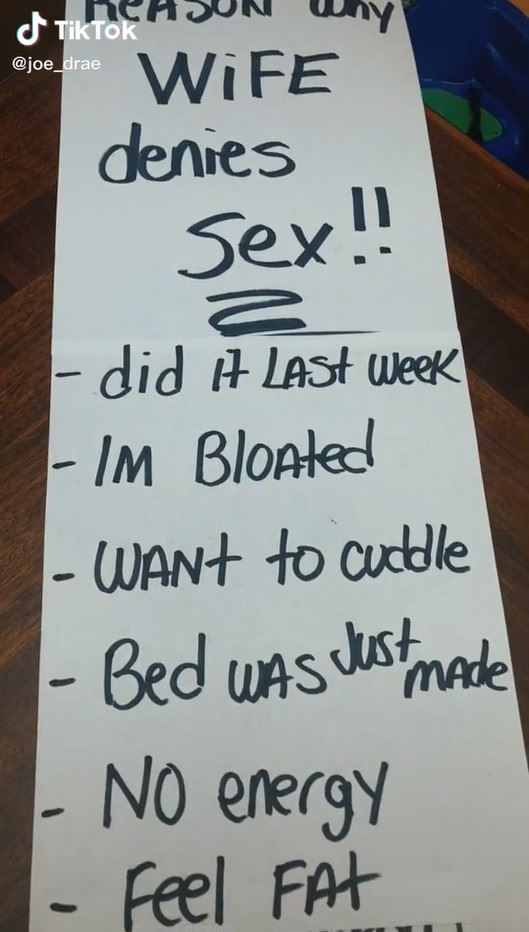 TikTok
@joe_drae
REASON why
WiFE
denies
Sex!!
- did it LASt week
- IM BloAted
- WANt to cuddle
- Bed wAs Just made
- NO energy
- Feel FAt